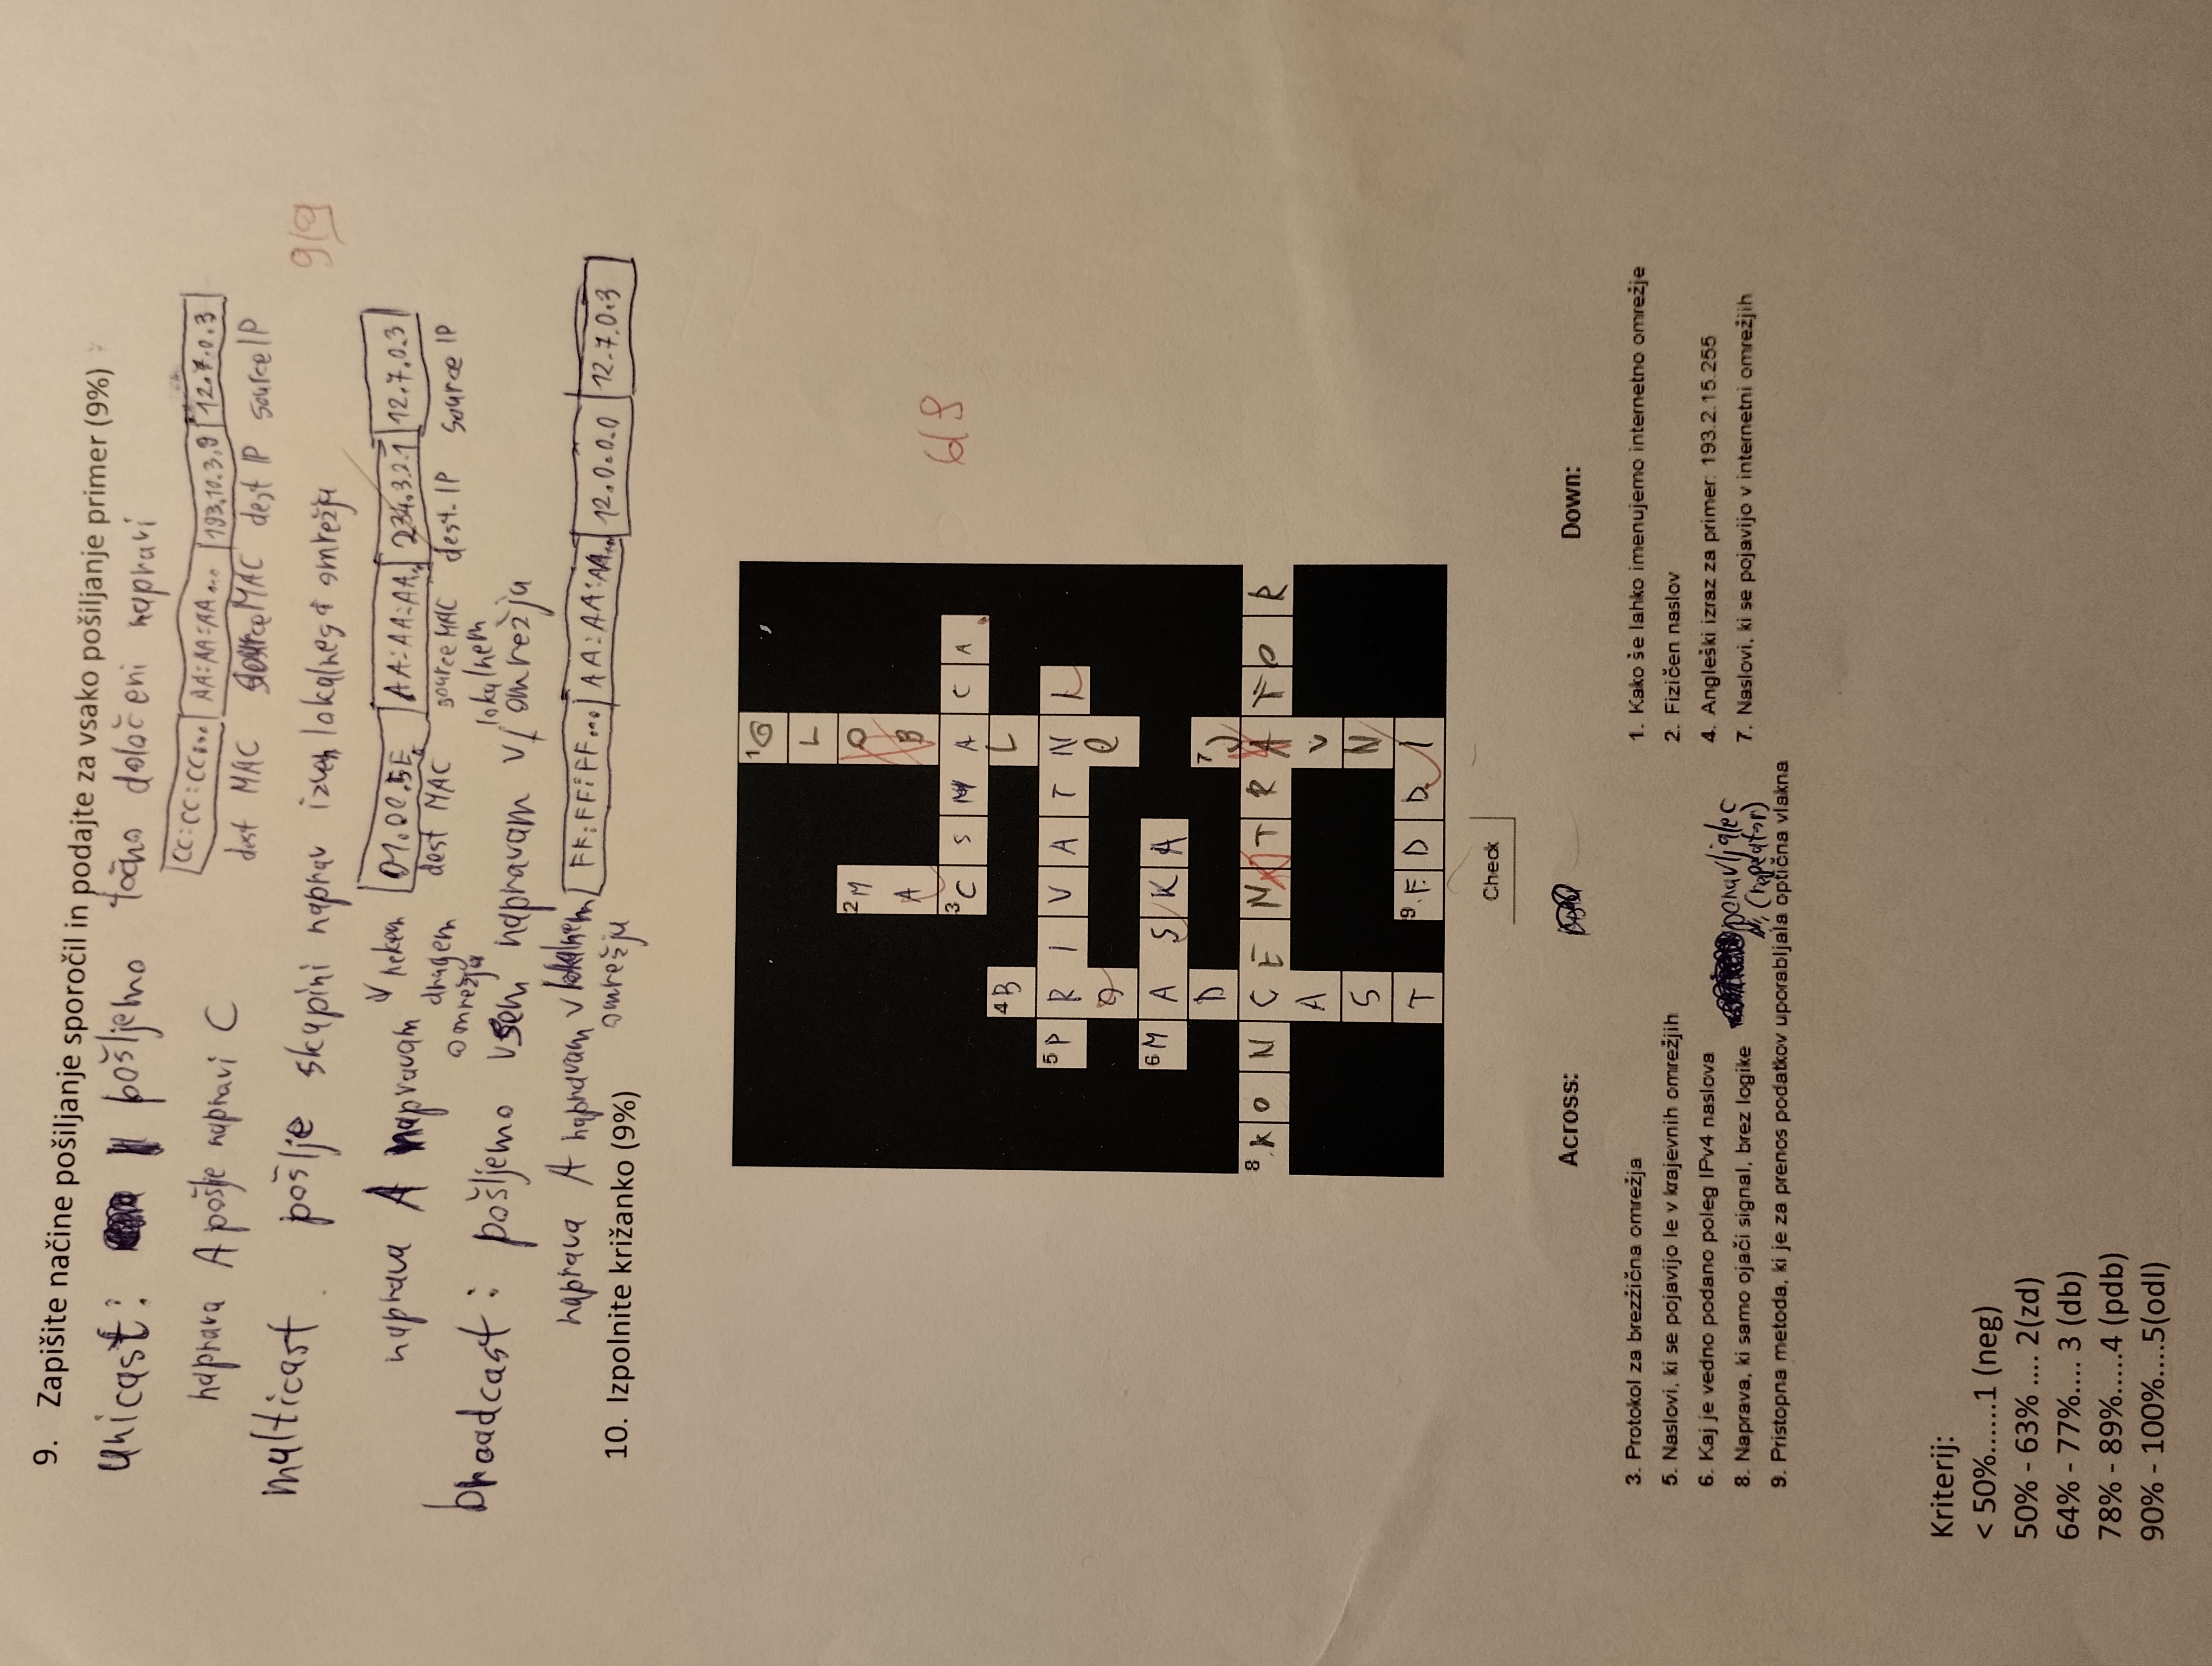 9. Zapišite načine pošiljanje sporočil in podajte za vsako pošiljanje primer (9%)
unicast: pošljemo točno določeni napravi
naprava A pošlje napravi C
CC:CC:CC... AA:AA:AA... 193.10.3.9 12.7.0.3
dest MAC source MAC dest IP source IP
multicast pošlje skupini naprav izven lokalnega omrežja
9/9
naprava A napravam v nekem drugem omrežju
01.00.5E. AA:AA:AA.. 234.3.2.1 12.7.0.3
dest MAC source MAC dest. IP source IP
broadcast: pošljemo vsem napravam v lokalnem omrežju
naprava A napravam v lokalnem omrežju
FF:FF:FF... AA:AA:AA... 12.0.0.0 12.7.0.3
10. Izpolnite križanko (9%)
1 G
L
2 M O
A B
3 C S M A C A
6/9
4 B L
5 P R I V A T N I
O e
6 M A S K A
D 7 J
8 K O N C E N T R A T O R
A V
S N
T 9 F D D I
Check
Across:
Down:
3. Protokol za brezžična omrežja
5. Naslovi, ki se pojavijo le v krajevnih omrežjih
6. Kaj je vedno podano poleg IPv4 naslova
8. Naprava, ki samo ojači signal, brez logike ponavljalec
(repeator)
9. Pristopna metoda, ki je za prenos podatkov uporabljala optična vlakna
1. Kako še lahko imenujemo internetno omrežje
2. Fizičen naslov
4. Angleški izraz za primer: 193.2.15.255
7. Naslovi, ki se pojavijo v internetni omrežjih
Kriterij:
< 50%......1 (neg)
50% - 63% .... 2(zd)
64% - 77%.... 3 (db)
78% - 89%.....4 (pdb)
90% - 100%....5(odl)